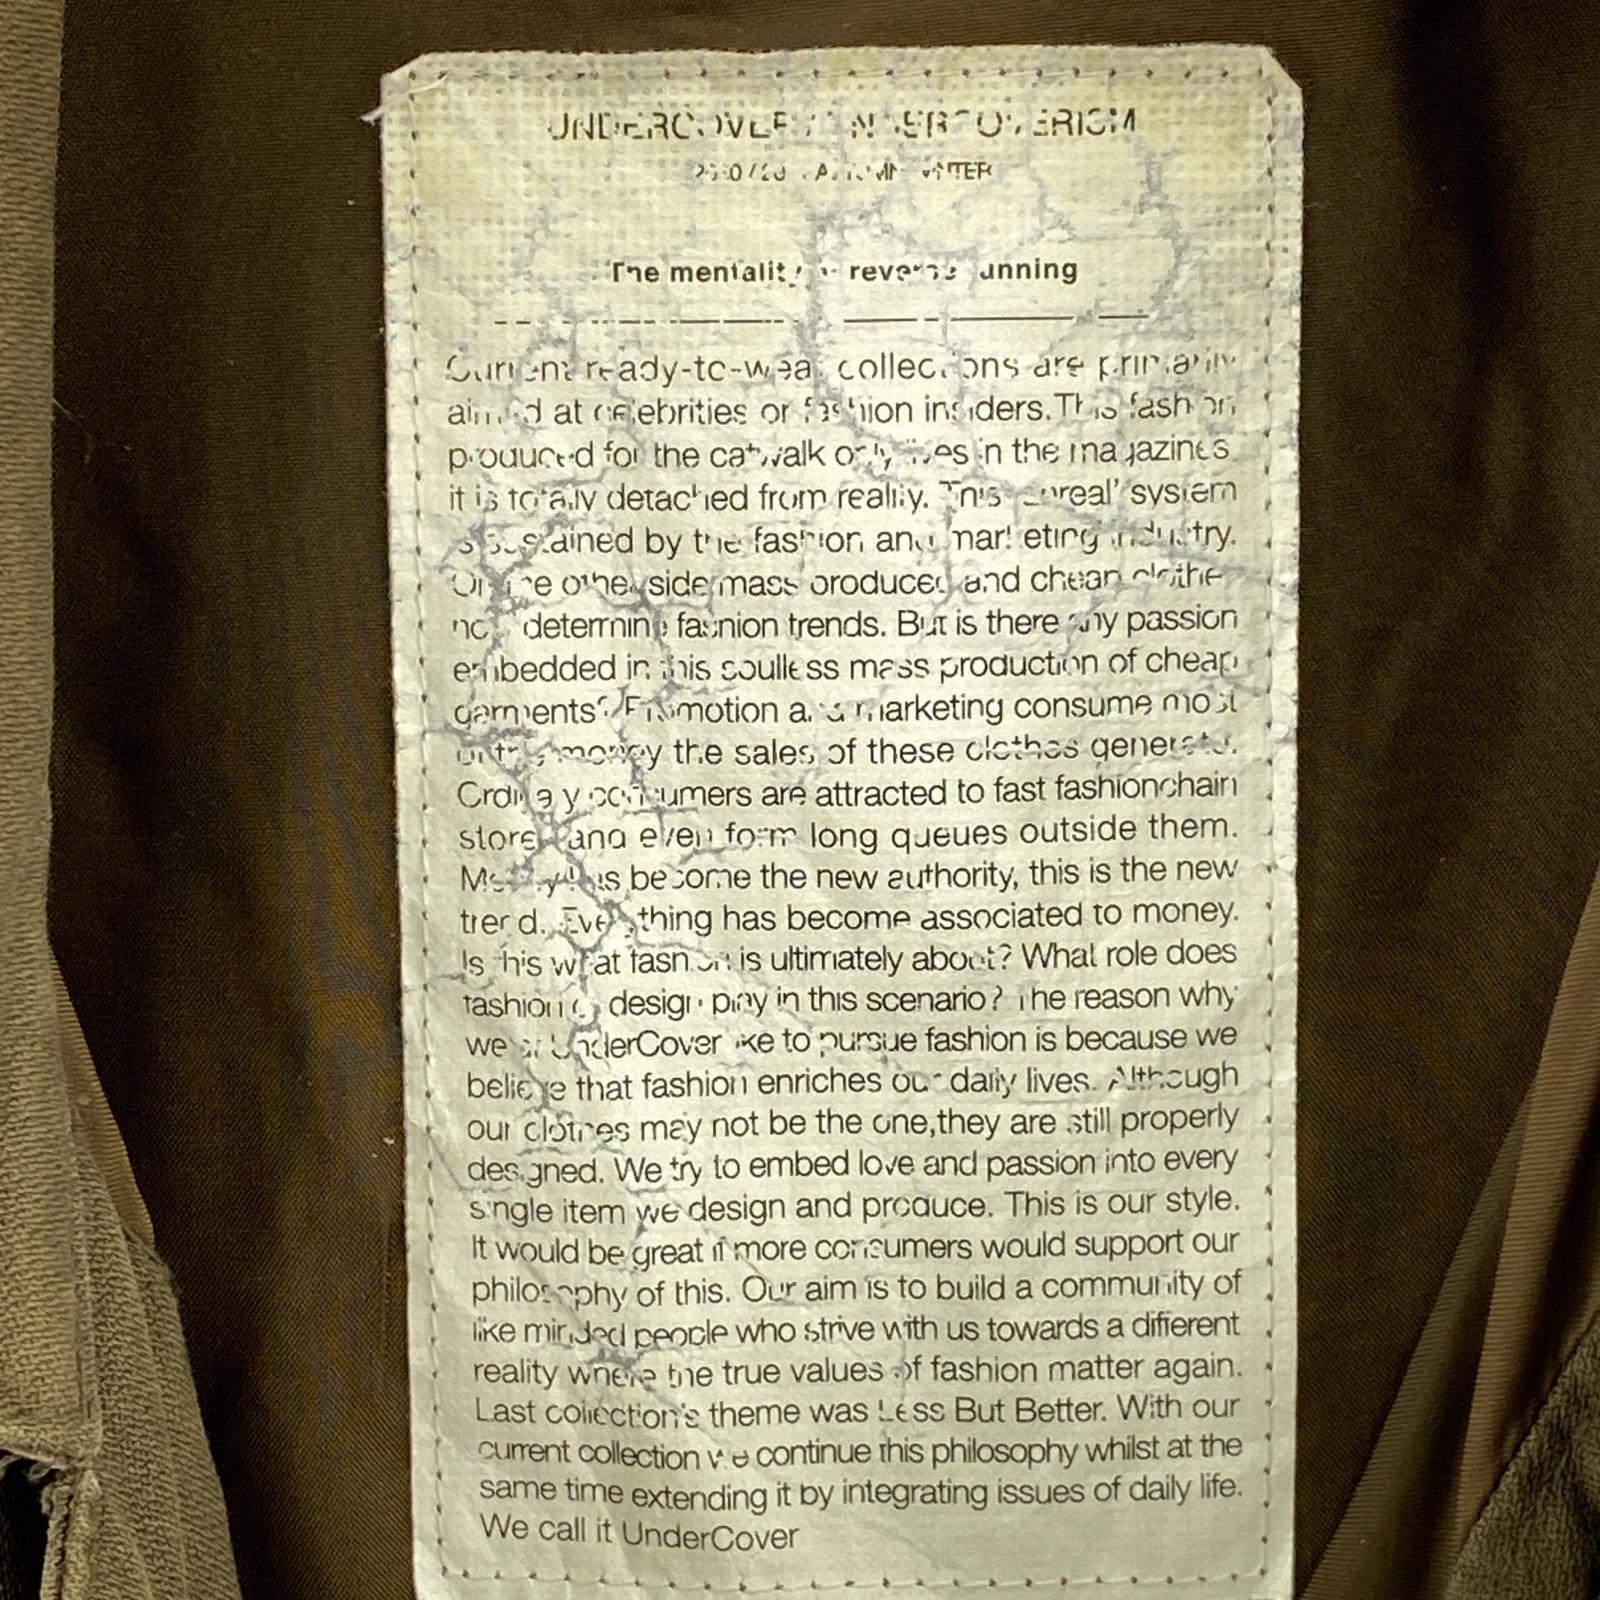 UNDERCOVER UNDERCOVERISM
AUTUMN WINTER
The mentality reverse running
Current ready-to-wear collections are primarily
aimed at celebrities or fashion insiders. This fashion
produced for the catwalk only lives in the magazines
it is totally detached from reality. This unreal' system
is sustained by the fashion and marketing industry.
On the other side mass produced and cheap clothes
now determine fashion trends. But is there any passion
embedded in this soulless mass production of cheap
garments? Promotion and marketing consume most
of the money the sales of these clothes generate.
Ordinary consumers are attracted to fast fashionchain
stores and even form long queues outside them.
Money has become the new authority, this is the new
trend. Everything has become associated to money.
Is this what fashion is ultimately about? What role does
fashion design play in this scenario? The reason why
we at UnderCover like to pursue fashion is because we
believe that fashion enriches our daily lives. Although
our clothes may not be the one,they are still properly
designed. We try to embed love and passion into every
single item we design and produce. This is our style.
It would be great if more consumers would support our
philosophy of this. Our aim is to build a community of
like minded people who strive with us towards a different
reality where the true values of fashion matter again.
Last collection's theme was Less But Better. With our
current collection we continue this philosophy whilst at the
same time extending it by integrating issues of daily life.
We call it UnderCover